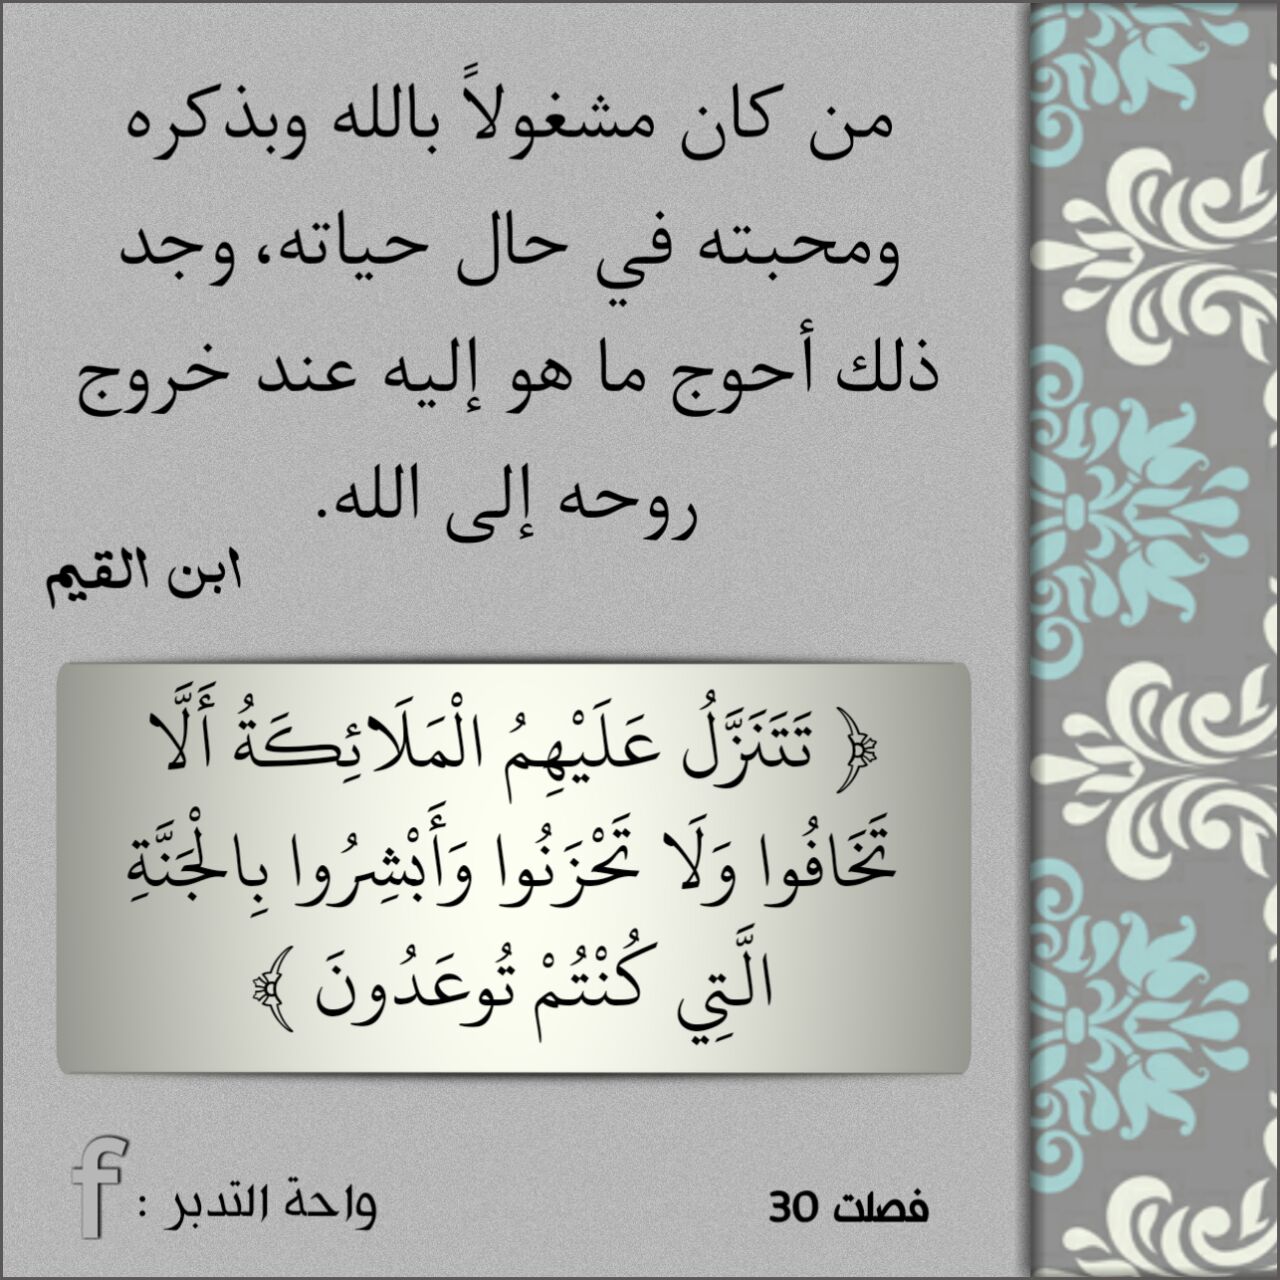 من كان مشغولاً بالله وبذكره
ومحبته في حال حياته، وجد
ذلك أحوج ما هو إليه عند خروج
روحه إلى الله.
ابن القيم
﴿ تَتَنَزَّلُ عَلَيْهِمُ الْمَلَائِكَةُ أَلَّا
تَخَافُوا وَلَا تَحْزَنُوا وَأَبْشِرُوا بِالْجَنَّةِ
الَّتِي كُنْتُمْ تُوعَدُونَ ﴾
فصلت 30
واحة التدبر : f